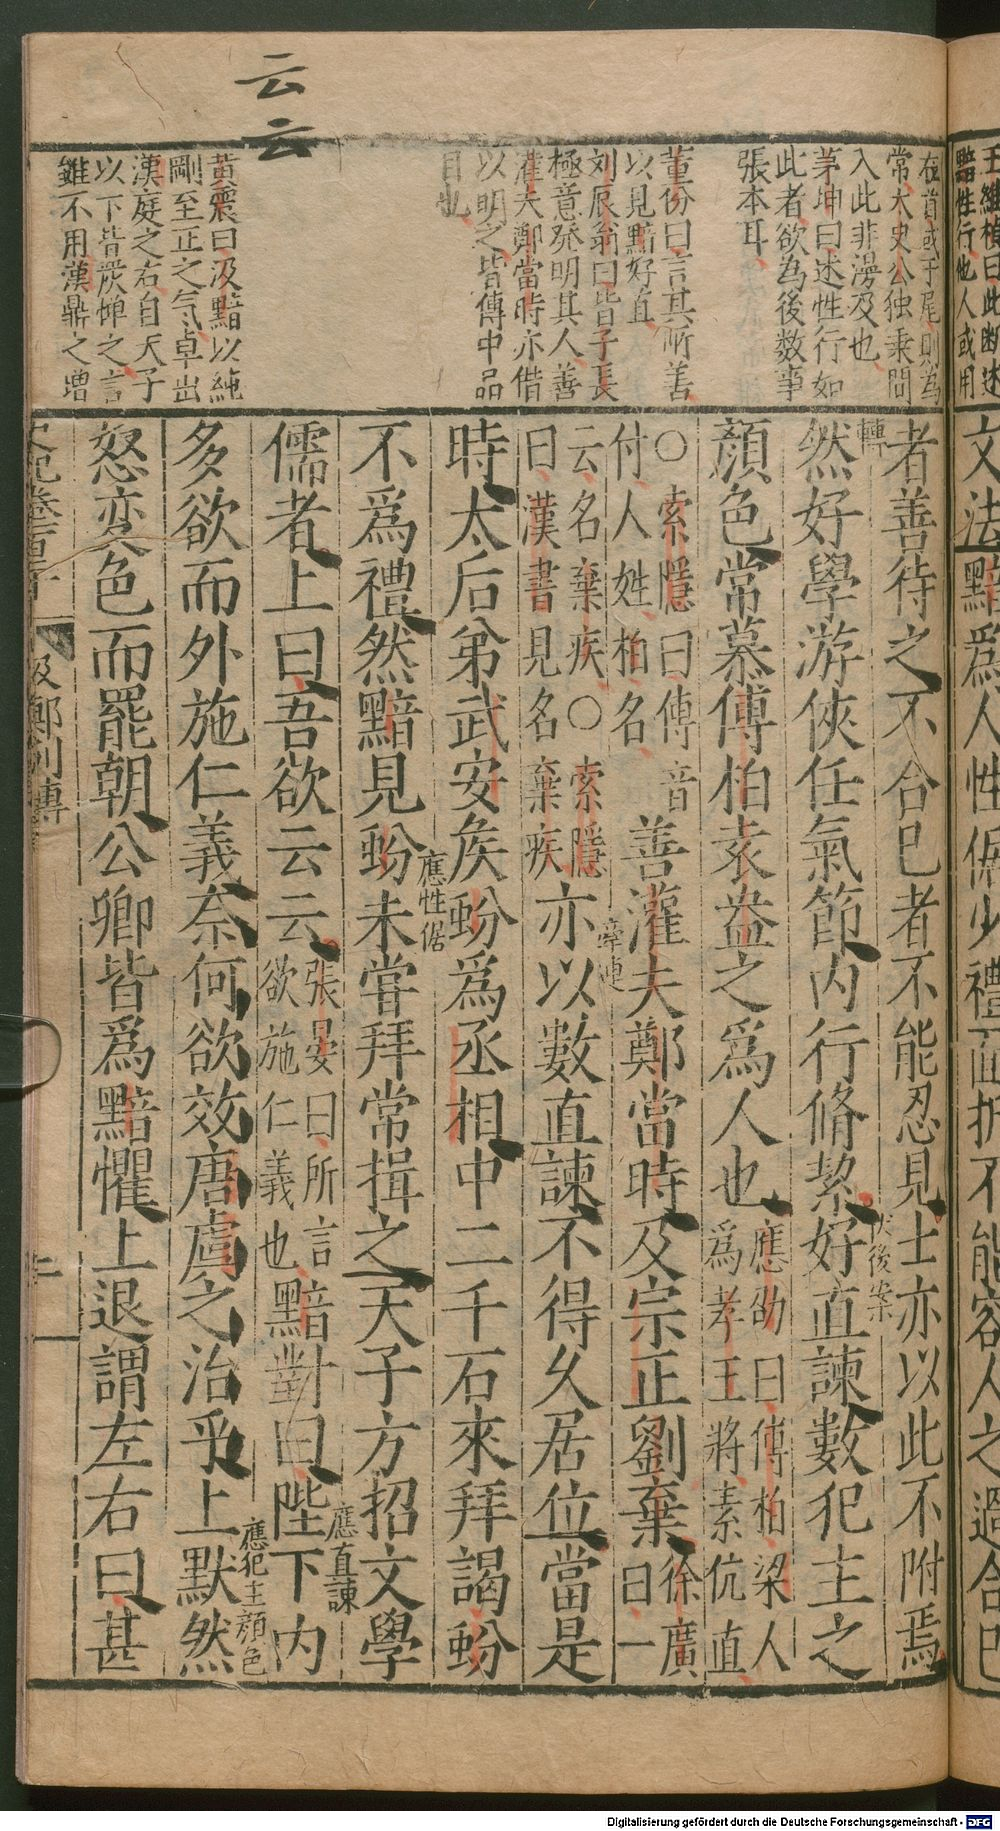 云云
王維楨曰此断述
黯性行他人或用
在首或于尾則為
常太史公独乘間
入此非漫及也
茅坤曰述性行如
此者欲為後数事
張本耳
董份曰言其所善
以見黯好直
刘辰翁曰皆子長
極意発明其人善
灌夫鄭當時亦借
以明之皆傳中品
目也
黄震曰汲黯以純
剛至正之气卓出
漢庭之右自天子
以下皆嚴憚之言
雖不用漢鼎之增
文法黯為人性倨少禮面折不能容人之過合己
者善待之不合已者不能忍見士亦以此不附焉
轉
然好學游俠任氣節内行脩絜好直諫數犯主之
伏後案
顔色常慕傅柏袁盎之為人也
應劭曰傅柏梁人
為孝王將素伉直
○索隱曰傅音
付人姓柏名
善灌夫鄭當時及宗正劉棄
徐廣
曰一
云名棄疾○索隱
曰漢書見名棄疾
亦以數直諫不得久居位當是
時太后弟武安侯蚡為丞相中二千石來拜謁蚡
應性倨
不為禮然黯見蚡未嘗拜常揖之天子方招文學
儒者上曰吾欲云云
張晏曰所言
欲施仁義也
黯對曰陛下内
應直諫
多欲而外施仁義奈何欲效唐虞之治乎上默然
應犯主顔色
怒変色而罷朝公卿皆為黯懼上退謂左右曰甚
史記卷一百二十
汲鄭列傳
二
Digitalisierung gefördert durch die Deutsche Forschungsgemeinschaft - DFG